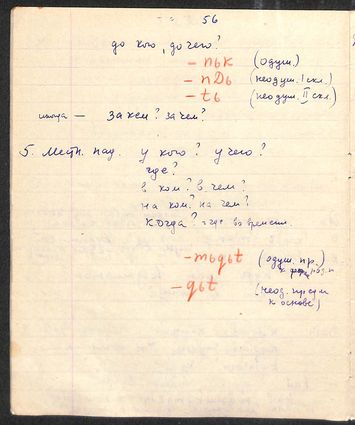 56
до кого, до чего?
– пък (одуш.)
– пDь (неодуш. I скл.)
– tь (неодуш. II скл.)
иногда – За кем? за чем?
5. Местн. пад. у кого? у чего?
где?
в ком? в чем?
на ком? на чем?
когда? где во времени.
– тьдьt (одуш. пр.)
к
– дьt (неод. прям
к основе)